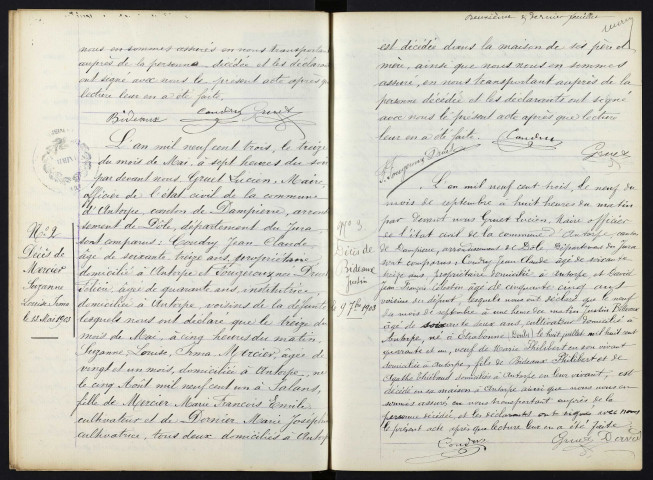 nous en sommes assurés en nous transportant
auprès de la personne décédée et les déclarants
ont signé avec nous le présent acte après que
lecture leur en a été faite.
Bideaux Coudry Gruet
L'an mil neuf cent trois, le treize
du mois de Mai, à sept heures du soir
par devant nous, Gruet Lucien, Maire
officier de l'état civil de la commune
d'Antorpe, canton de Dampierre, arron-
dissement de Dôle, département du Jura
sont comparus: Coudry Jean Claude,
âgé de soixante treize ans, propriétaire
domicilié à Antorpe et
âgé de quarante ans, institutrice,
domiciliée à Antorpe, voisins de la défunte
lesquels nous ont déclaré que le treize du
mois de Mai, à cinq heures du matin,
Suzanne Louise Irma Mercier, âgée de
vingt et un mois, domiciliée à Antorpe, née
le cinq Août mil neuf cent un à Salans,
fille de Mercier Marie François Emile
cultivateur et de Dornier Marie Joséphine
cultivatrice, tous deux domiciliés à Antorpe
N° 2
Décès de
Mercier
Suzanne
Louise Irma
le 13 Mai 1903
Deuxième et dernier feuillet
est décédée dans la maison de ses père et
mère, ainsi que nous nous en sommes
assuré, en nous transportant auprès de la
personne décédée et les déclarants ont signé
avec nous le présent acte après que lecture
leur en a été faite. Coudry
Gruet
L'an mil neuf cent trois, le neuf du
mois de septembre à huit heures du matin
par devant nous Gruet Lucien, Maire officier
de l'état civil de la commune d'Antorpe, canton
de Dampierre, arrondissement de Dôle Département du Jura
sont comparus: Coudry Jean Claude âgé de soixante
treize ans, propriétaire domicilié à Antorpe et David
âgé de cinquante cinq ans
voisins du défunt, lesquels nous ont déclaré que le neuf
du mois de septembre, à une heure du matin Justin Bideaux
âgé de soixante deux ans, cultivateur domicilié à
Antorpe, né à (Doubs) le huit juillet mil huit cent
quarante et un, veuf de Marie Philibert en son vivant
domiciliée à Antorpe, fils de Bideaux Philibert et de
Agathe domiciliés à Antorpe en leur vivant, est
décédé en sa maison à Antorpe ainsi que nous nous en
sommes assuré, en nous transportant auprès de la
personne décédée, et les déclarants ont signé avec nous
le présent acte après que lecture leur en a été faite.
Coudry Gruet David
N° 3
Décès de
Bideaux
Justin
le 9 7bre 1903